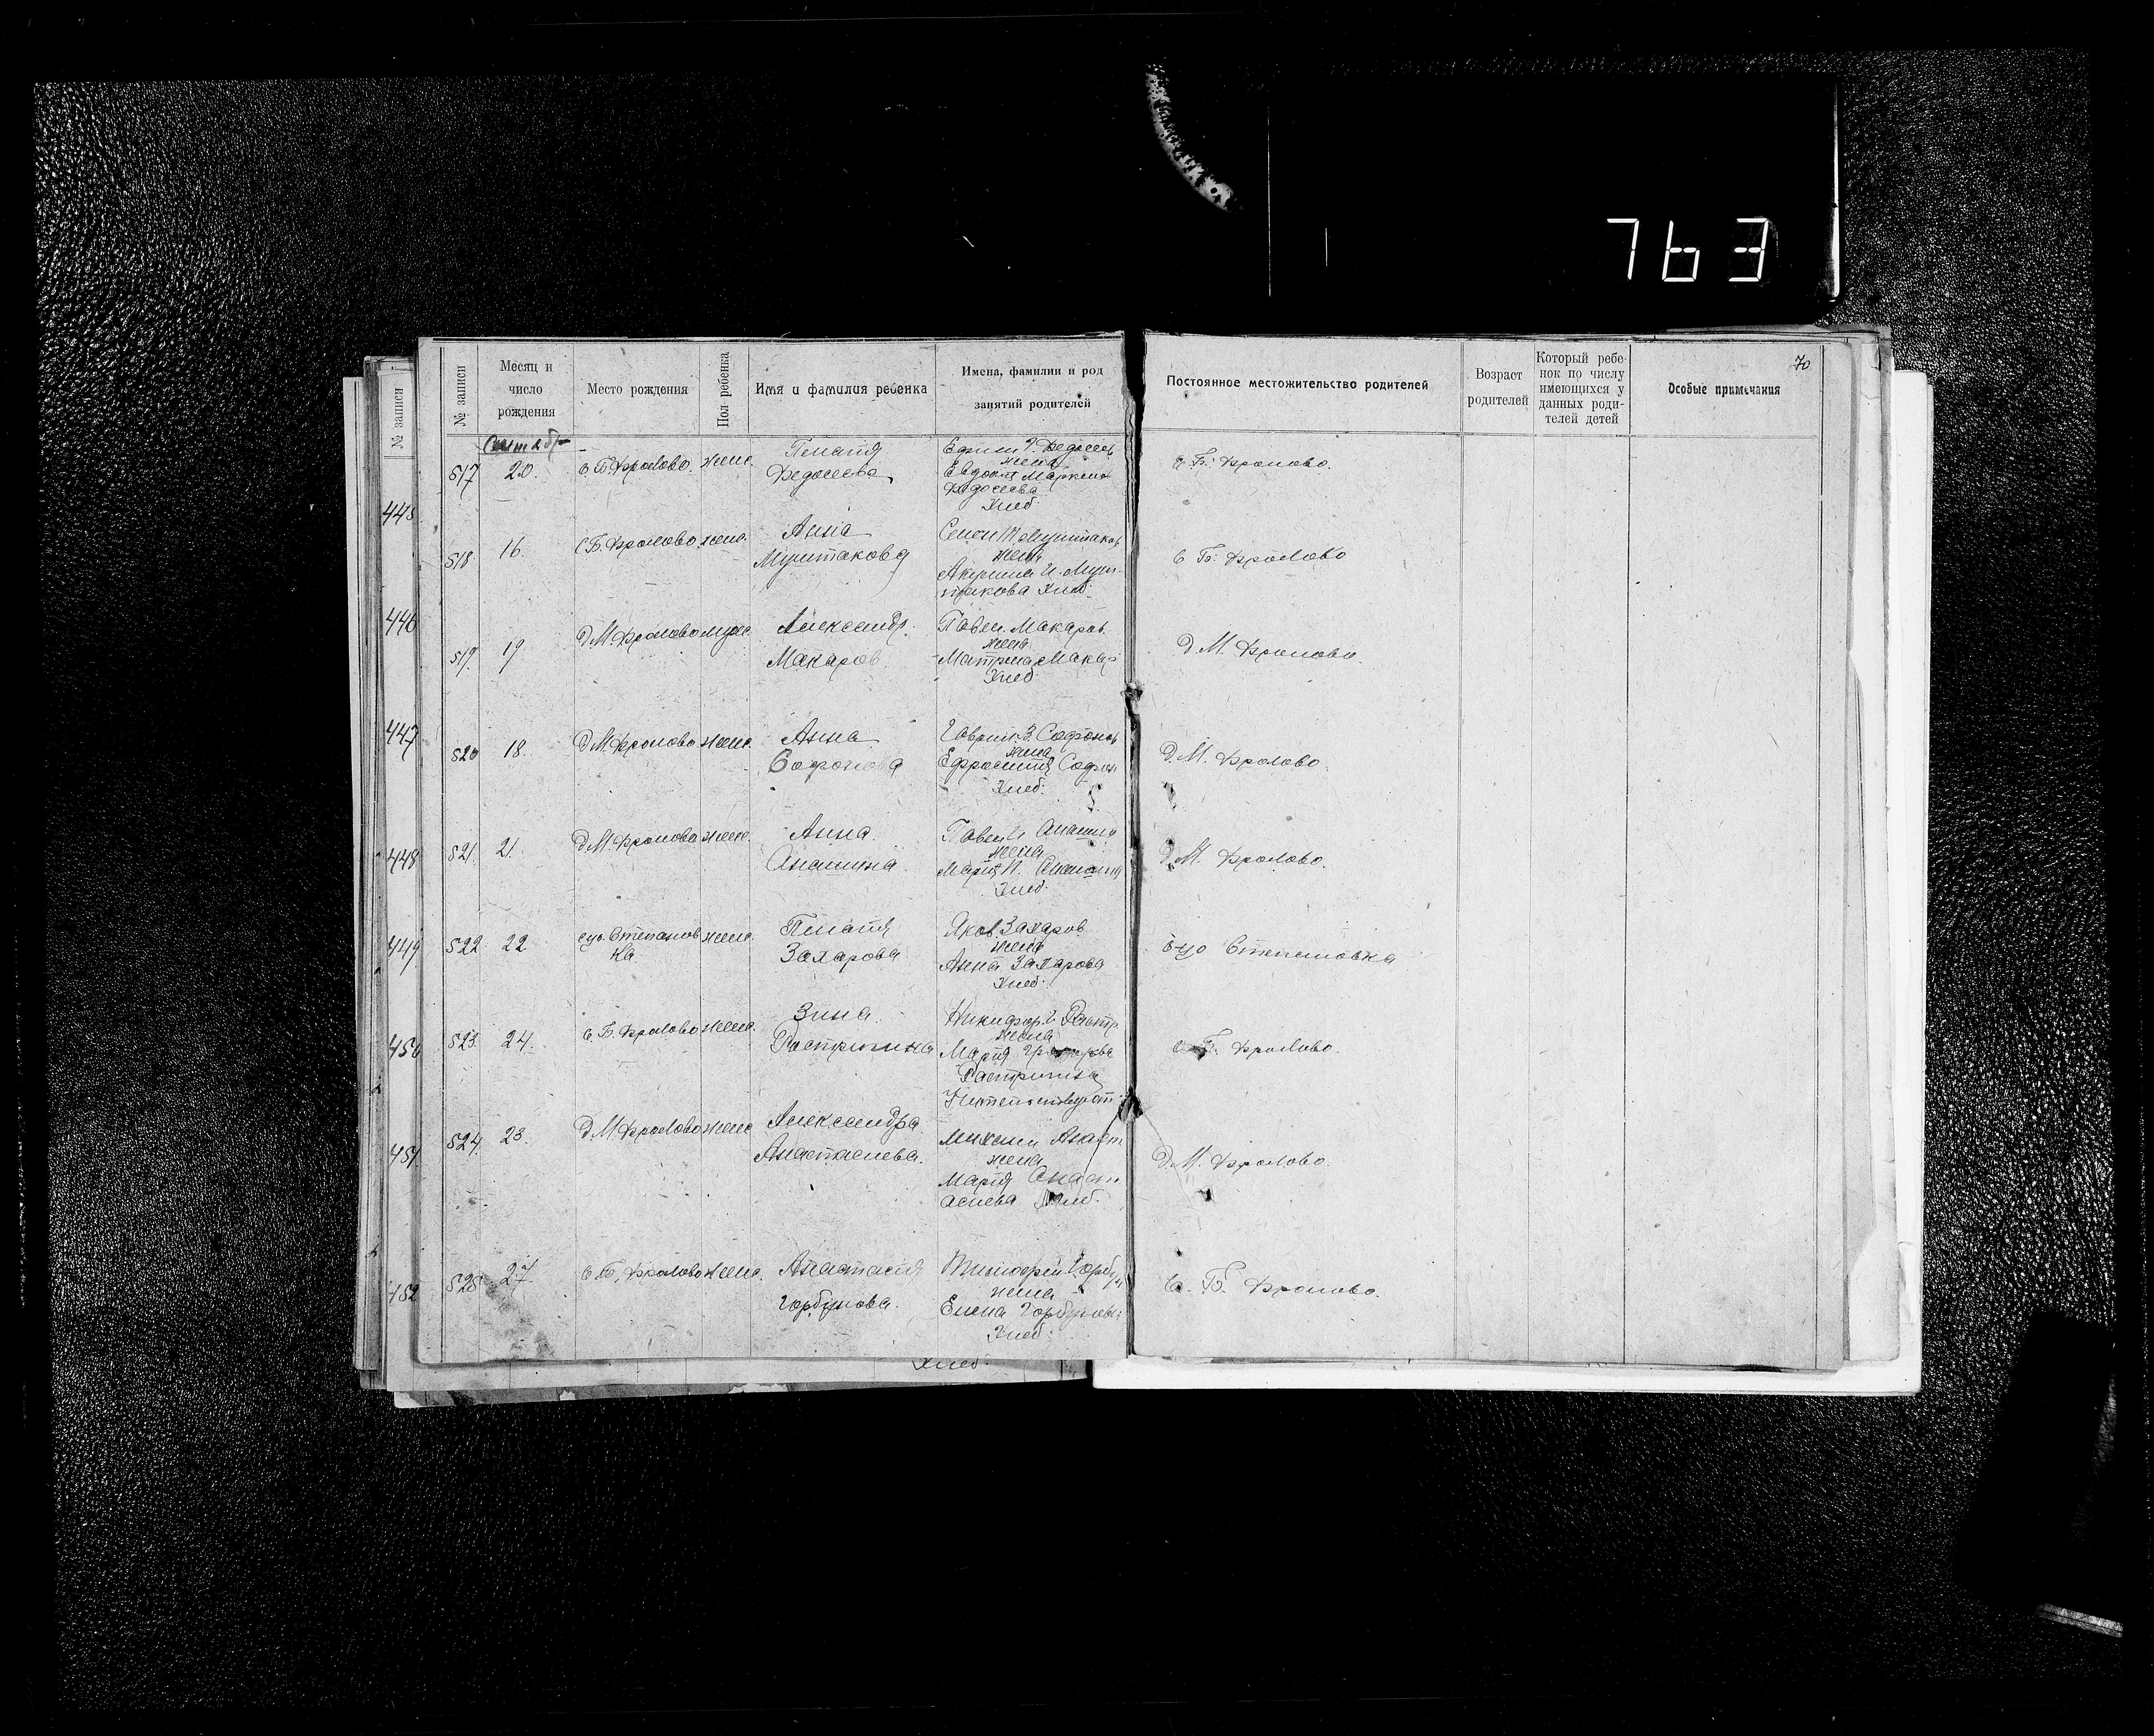 763
70
№ записи
№ записи
Месяц и
число
рождения
Место рождения
Пол ребенка
Имя и фамилия ребенка
Имена, фамилии и род
занятий родителей
Постоянное местожительство родителей
Возраст
родителей
Который ребе-
нок по числу
имеющихся у
данных роди-
телей детей
Особые примечания
517 20. с. Б. Фролово. женс. Пелагія
Федосеева
Ефим Г. Федосеев
жена
Евдокія
Федосеева
Хлеб.
с. Б. Фролово.
445
518 16. с Б. Фролово женс. Анна
Муштакова
Семен Муштаков
жена
Акулина И. Муш-
такова Хлеб.
с Б. Фролово
446
519 19 Д М. Фролово мужс. Александр.
Макаров.
Павел Макаров.
жена
Матрена Макар
Хлеб.
Д. М. Фролово.
447
520 18. Д М. Фролово женс. Анна
Софонова
Гаврил З. Софонов
жена
Ефросинія Софон
Хлеб.
Д. М. Фролово.
448
521. 21. Д М. Фролово женс. Анна.
Ананина.
Павел И Ананин
жена
Марія И. Ананина
Хлеб.
Д. М. Фролово.
449
522 22 сцо. Степанов женс.
ка
Пелагія
Захарова
Яков. Захаров
жена
Анна Захарова
Хлеб.
с-цо Степановка
450
523. 24. с. Б. Фролово женс. Зина.
Растригина
Никифор. Г. Растр
жена
Марія
Растригина
с Б. Фролово.
451
524. 23. Д М. Фролово женс Александра
Анастасиева.
Михаил Анаст
жена
Марія Анаст
асиева Хлеб.
Д. М. Фролово.
452
525 27 с. Б. Фролово женс. Анастасія
Горбунова.
Тимофей Горбун
жена
Елена Горбунова
Хлеб.
с. Б. Фролово.
Хлеб.